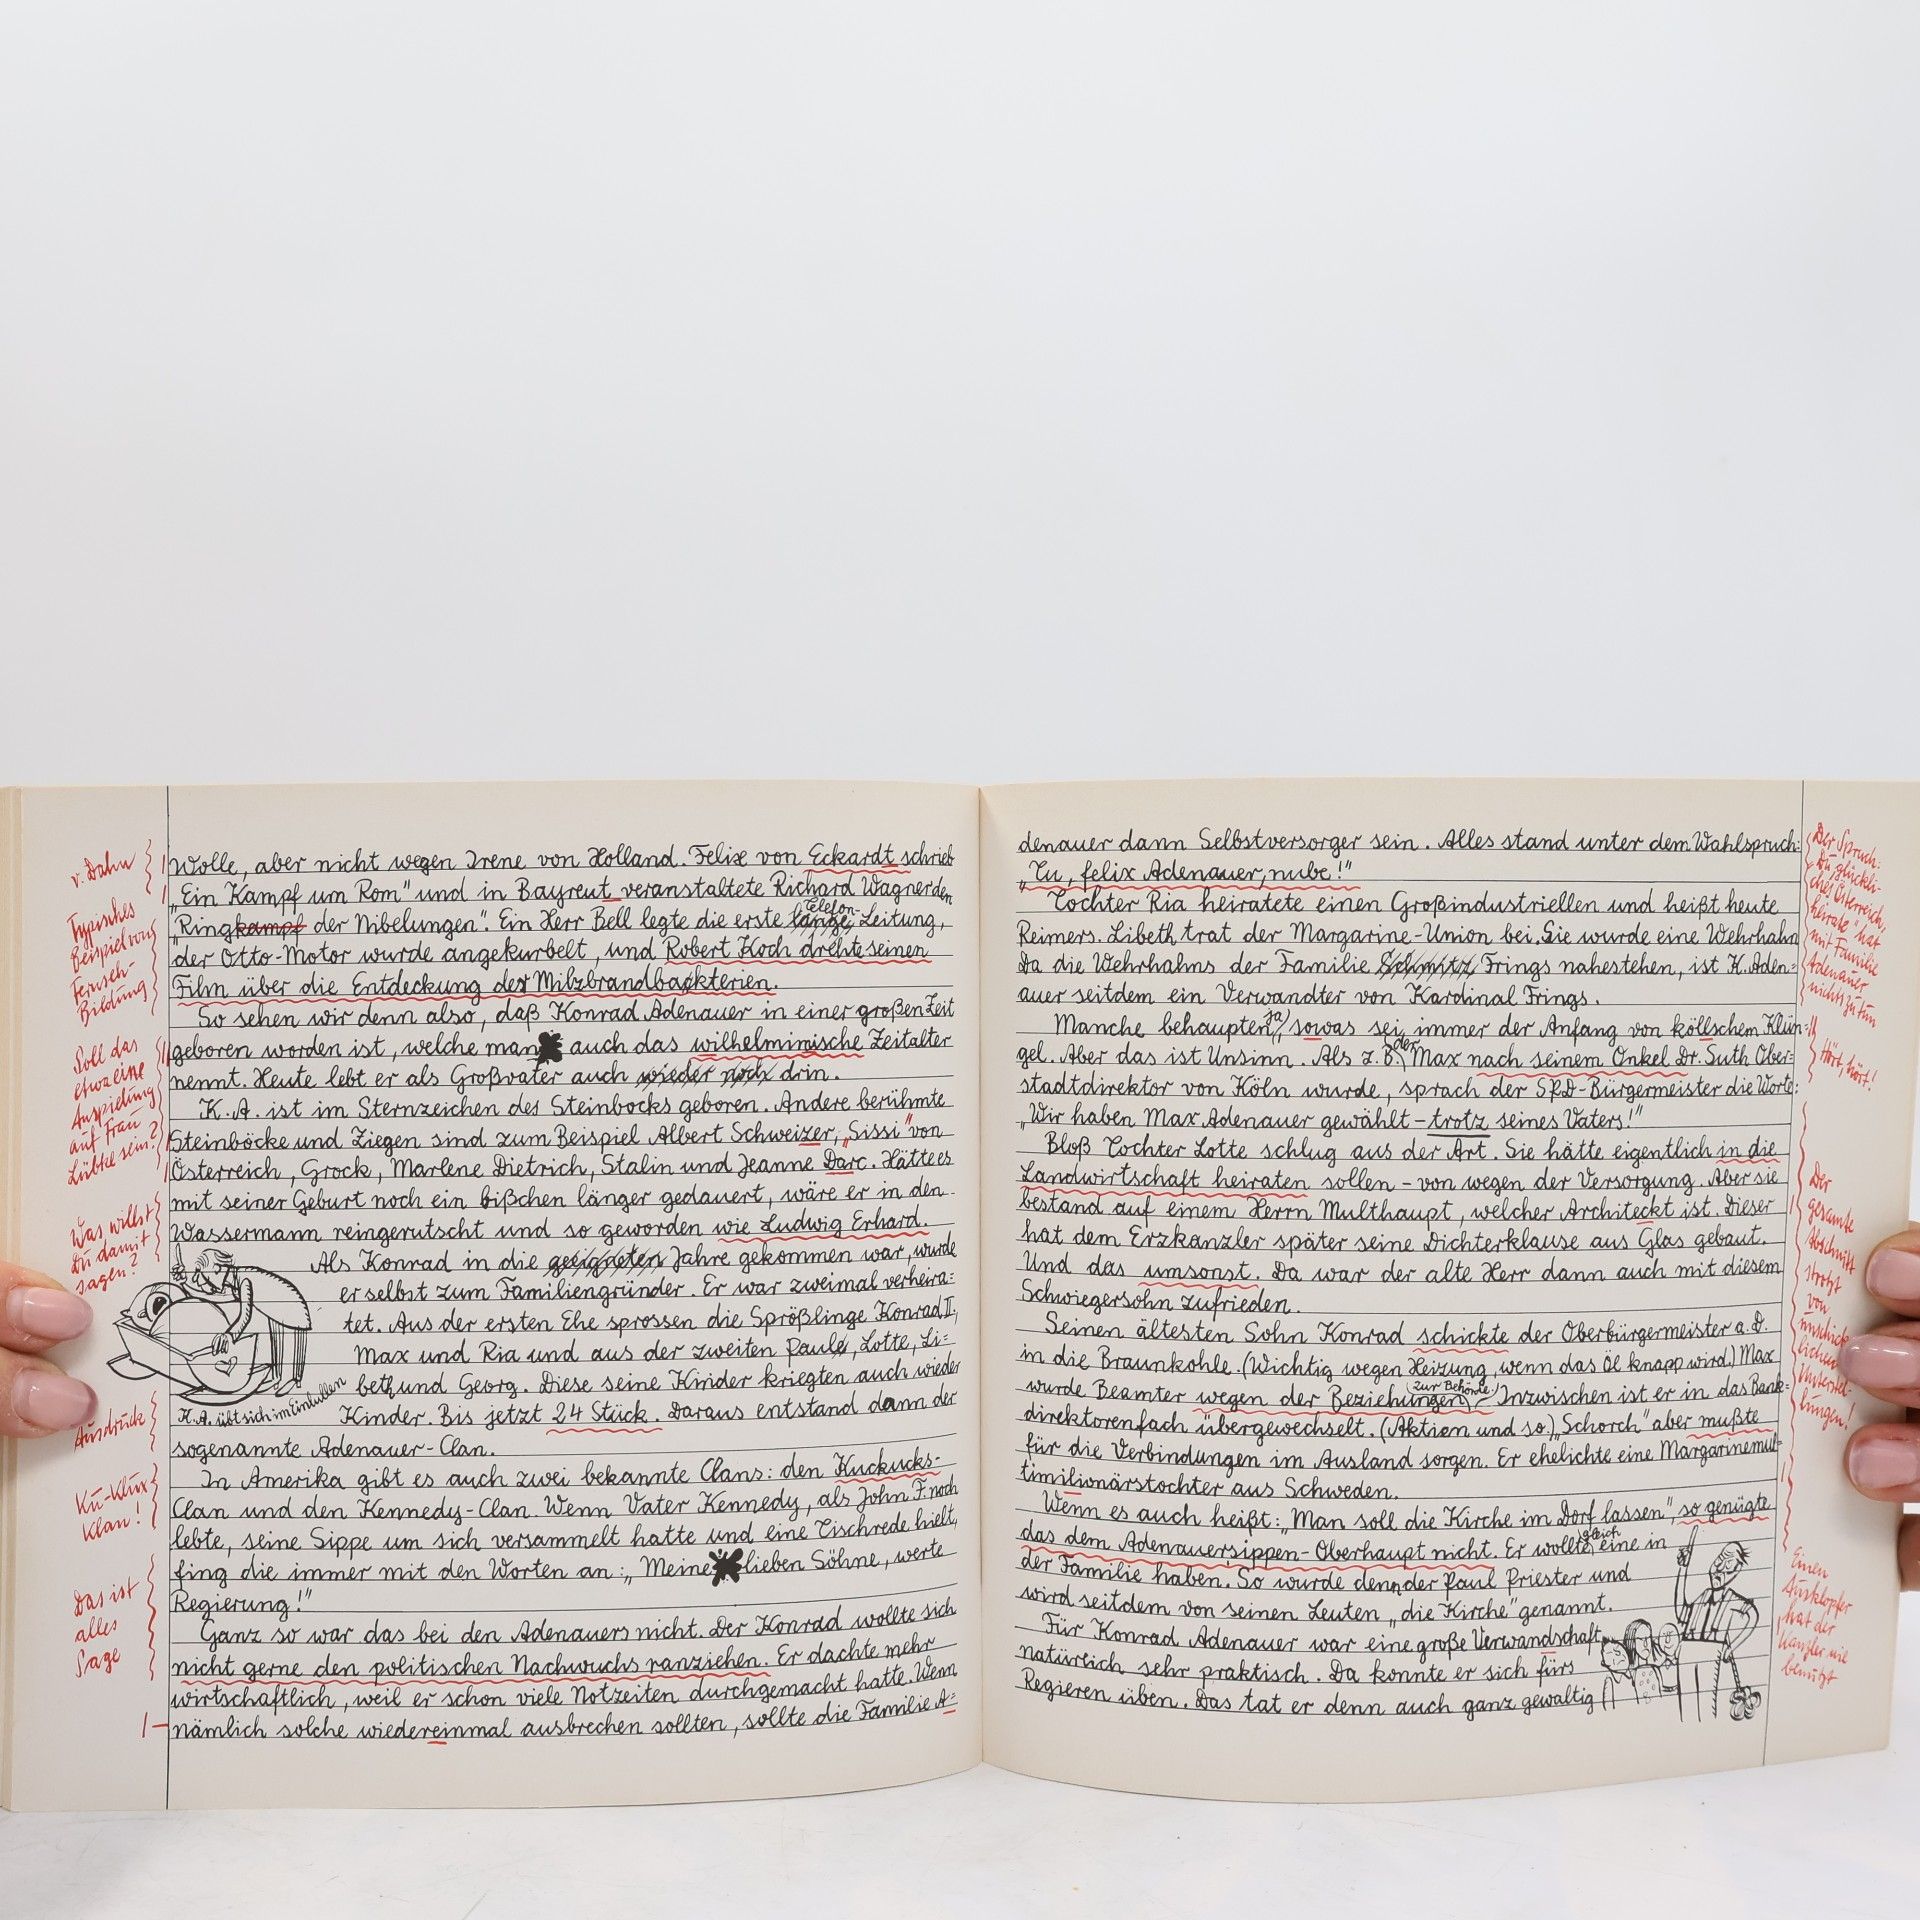 v. Dahn
Typisches
Beispiel von
Fernseh-
Bildung
Soll das
etwa eine
Anspielung
auf Frau
Lübke sein?
Was willst
Du damit
sagen?
Ausdruck
Ku-Klux
Klan!
Das ist
alles
Wolle, aber nicht wegen Irene von Holland. Felix von Eckardt schrieb
„Ein Kampf um Rom" und in Bayreut veranstaltete Richard Wagner den
„Ringkampf der Nibelungen". Ein Herr Bell legte die erste lange Telefon-Leitung,
der Otto-Motor wurde angekurbelt, und Robert Koch drehte seinen
Film über die Entdeckung der Milzbrandbackterien.
So sehen wir denn also, daß Konrad Adenauer in einer großen Zeit
geboren worden ist, welche man auch das wilhelminische Zeitalter
nennt. Heute lebt er als Großvater auch wieder noch drin.
K. A. ist im Sternzeichen des Steinbocks geboren. Andere berühmte
Steinböcke und Ziegen sind zum Beispiel Albert Schweizer, „Sissi" von
Österreich, Grock, Marlene Dietrich, Stalin und Jeanne Darc. Hätte es
mit seiner Geburt noch ein bißchen länger gedauert, wäre er in den
Wassermann reingerutscht und so geworden wie Ludwig Erhard.
Als Konrad in die geeigneten Jahre gekommen war, wurde
er selbst zum Familiengründer. Er war zweimal verheira=
tet. Aus der ersten Ehe sprossen die Sprößlinge Konrad II.,
Max und Ria und aus der zweiten Paule, Lotte, Li=
beth und Georg. Diese seine Kinder kriegten auch wieder
Kinder. Bis jetzt 24 Stück. Daraus entstand dann der
K. A. übt sich im Einlullen
sogenannte Adenauer-Clan.
In Amerika gibt es auch zwei bekannte Clans: den Kuckucks-
Clan und den Kennedy-Clan. Wenn Vater Kennedy, als John F. noch
lebte, seine Sippe um sich versammelt hatte und eine Tischrede hielt,
fing die immer mit den Worten an: „Meine lieben Söhne, werte
Regierung!"
Ganz so war das bei den Adenauers nicht. Der Konrad wollte sich
nicht gerne den politischen Nachwuchs ranziehen. Er dachte mehr
wirtschaftlich, weil er schon viele Notzeiten durchgemacht hatte. Wenn
nämlich solche wiedereinmal ausbrechen sollten, sollte die Familie A=
denauer dann Selbstversorger sein. Alles stand unter dem Wahlspruch:
„Tu, felix Adenauer, nube!"
Tochter Ria heiratete einen Großindustriellen und heißt heute
Reimers. Libeth trat der Margarine-Union bei. Sie wurde eine Wehrhahn
Da die Wehrhahns der Familie Schmitz Frings nahestehen, ist K. Aden=
auer seitdem ein Verwandter von Kardinal Frings.
Manche behaupten ja, sowas sei immer der Anfang von köllschem Klün=
gel. Aber das ist Unsinn. Als z. B. der Max nach seinem Onkel Dr. Suth Ober=
stadtdirektor von Köln wurde, sprach der SPD-Bürgermeister die Worte:
„Wir haben Max Adenauer gewählt – trotz seines Vaters!"
Bloß Tochter Lotte schlug aus der Art. Sie hätte eigentlich in die
Landwirtschaft heiraten sollen – von wegen der Versorgung. Aber sie
bestand auf einem Herrn Multhaupt, welcher Architeckt ist. Dieser
hat dem Erzkanzler später seine Dichterklause aus Glas gebaut.
Und das umsonst. Da war der alte Herr dann auch mit diesem
Schwiegersohn zufrieden.
Seinen ältesten Sohn Konrad schickte der Oberbürgermeister a. D.
in die Braunkohle. (Wichtig wegen Heizung, wenn das Öl knapp wird.) Max
wurde Beamter wegen der Beziehungen (zur Behörde.) Inzwischen ist er in das Bank=
direktorenfach übergewechselt. (Aktion und so.) „Schorch" aber mußte
für die Verbindungen im Ausland sorgen. Er ehelichte eine Margarinemul=
timilionärstochter aus Schweden.
Wenn es auch heißt: „Man soll die Kirche im Dorf lassen", so genügte
das dem Adenauersippen-Oberhaupt nicht. Er wollte gleich eine in
der Familie haben. So wurde denn der Paul Priester und
wird seitdem von seinen Leuten „die Kirche" genannt.
Für Konrad Adenauer war eine große Verwandschaft
natürlich sehr praktisch. Da konnte er sich fürs
Regieren üben. Das tat er denn auch ganz gewaltig
Der Spruch:
„Du, glückli-
ches Österreich,
heirate" hat
mit Familie
Adenauer
nichts zu tun
Hört, hört!
Der
gesamte
Abschnitt
strotzt
von
unschick
lichen
Unterstel-
lungen!
Einen
Ausklopfer
hat der
Kanzler nie
benutzt